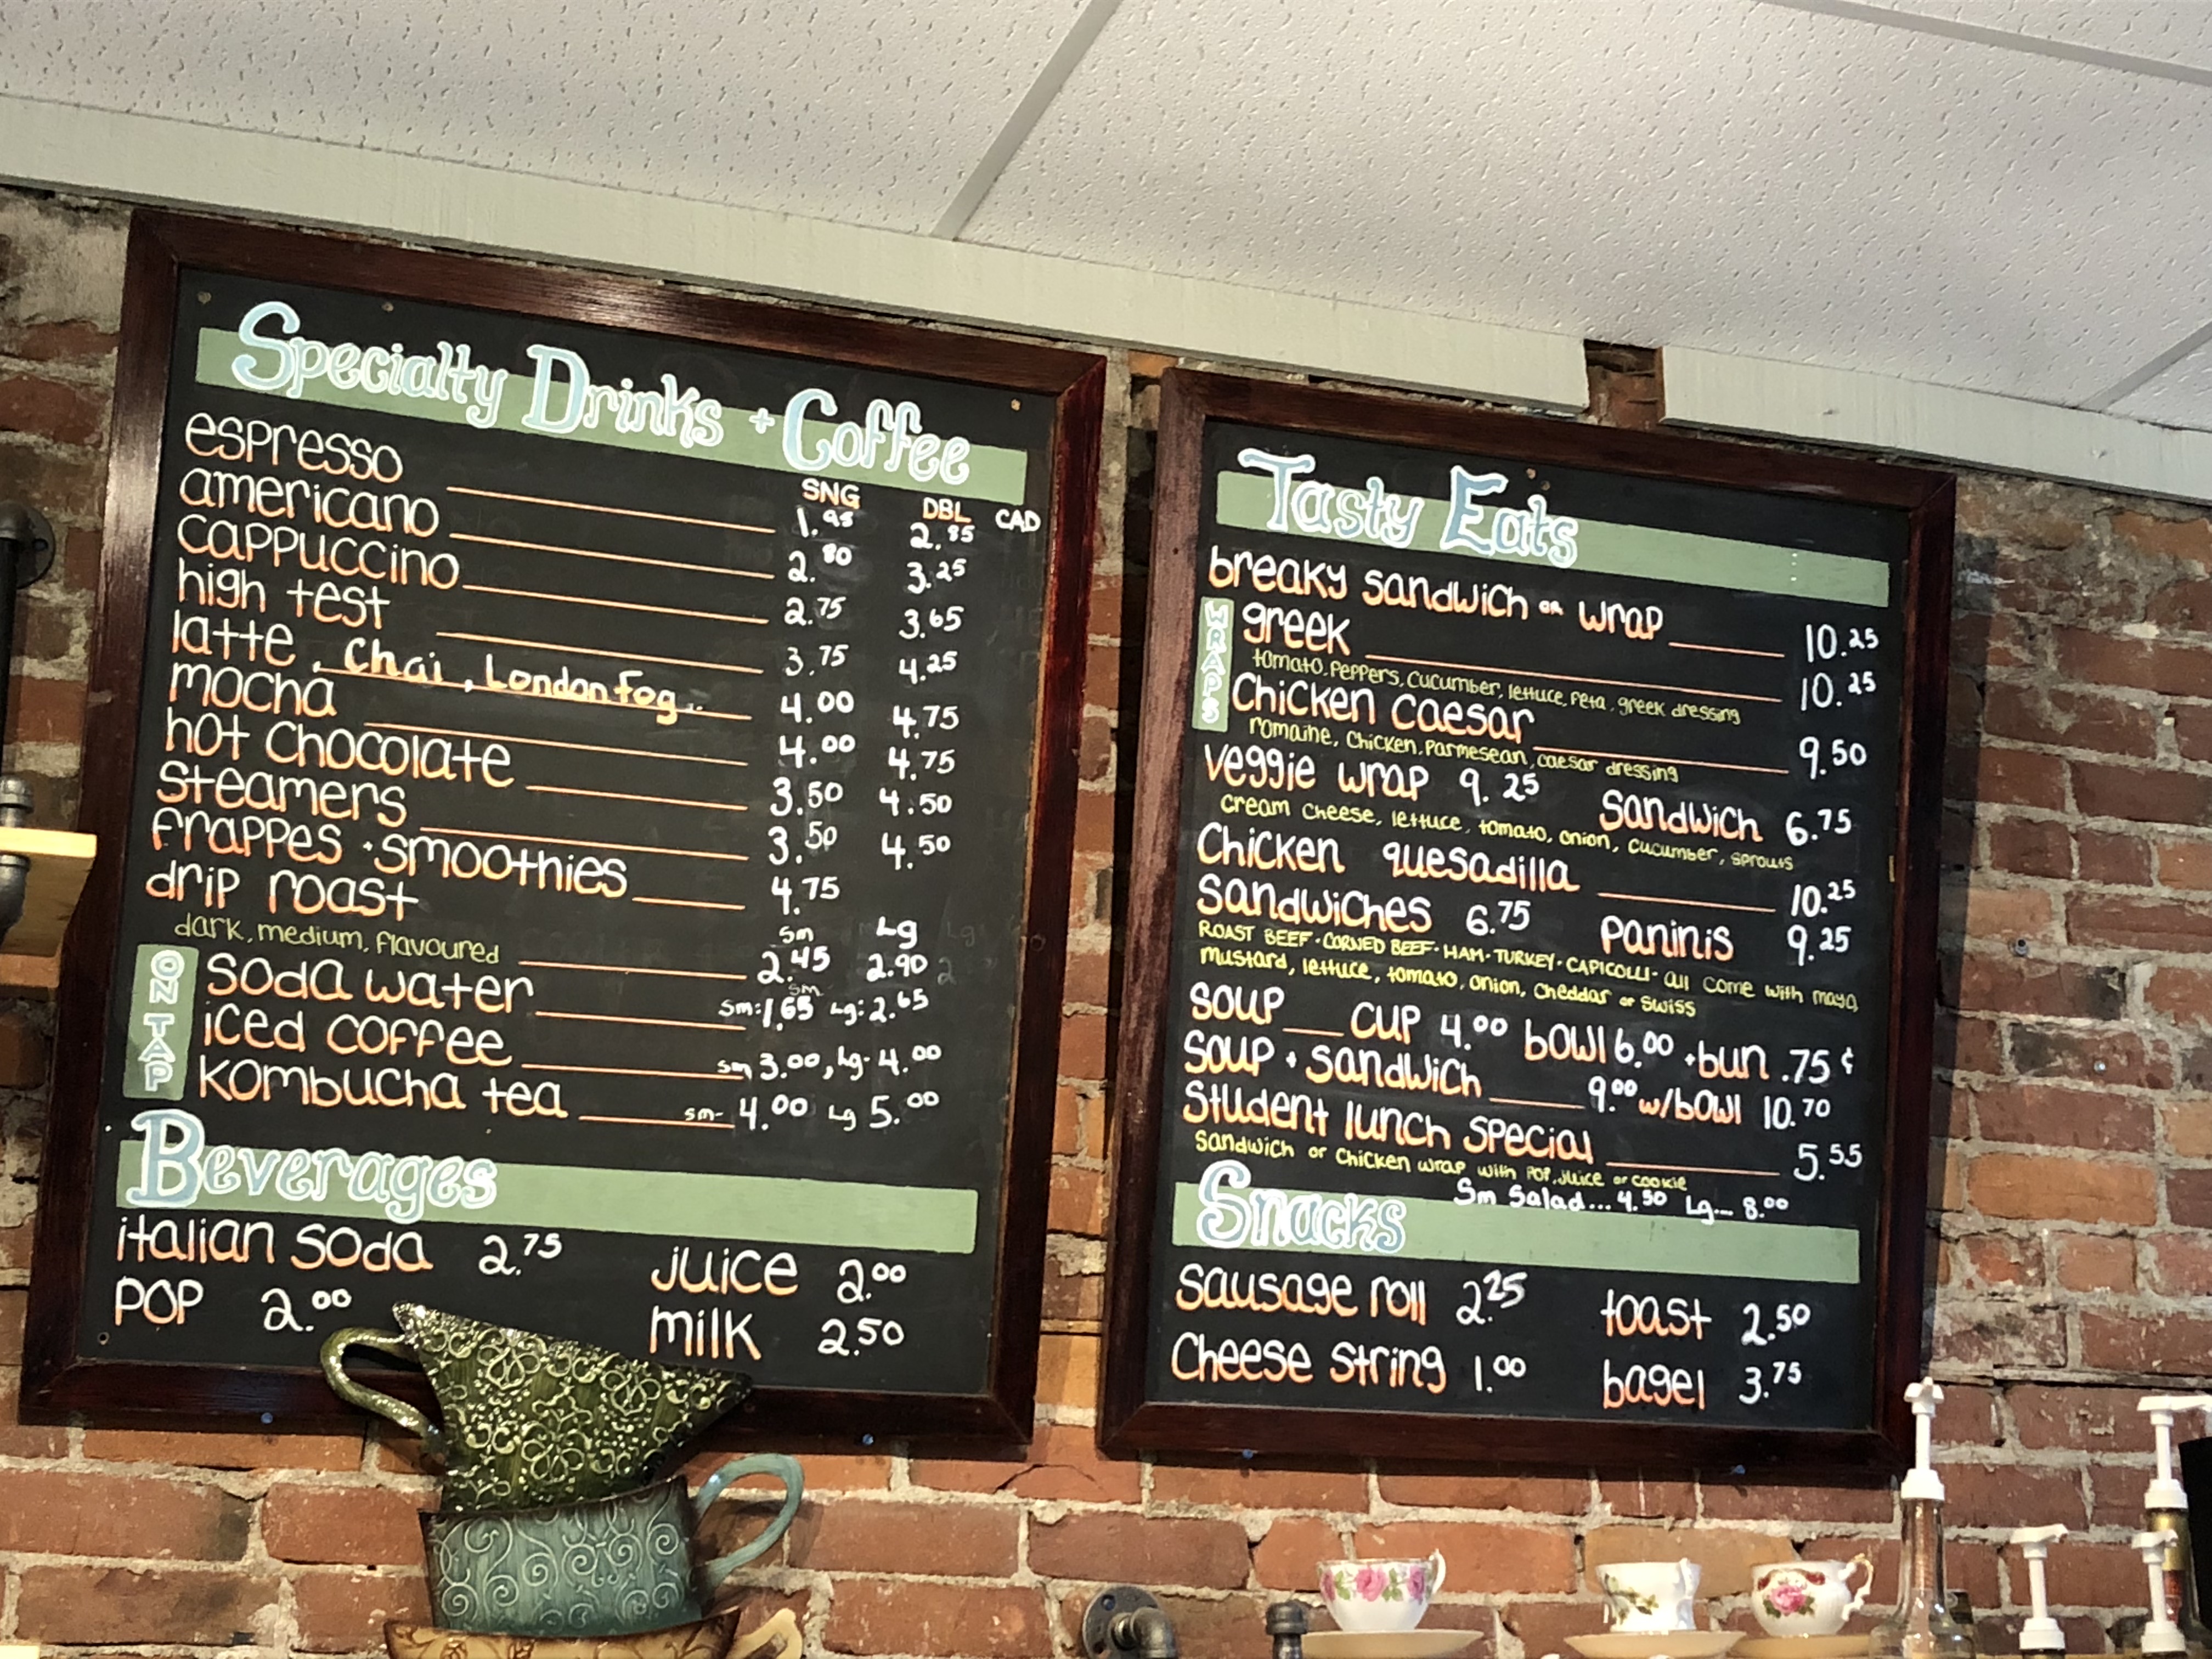 Specialty Drinks + Coffee
SNG DBL CAD
espresso 1.95 2.85
americano 2.80 3.25
cappuccino 2.75 3.65
high test 3.75 4.25
latte, Chai, London Fog.. 4.00 4.75
mocha 4.00 4.75
hot chocolate 3.50 4.50
steamers 3.50 4.50
frappes · smoothies 4.75
drip roast sm Lg
dark, medium, flavoured 2.45 2.90
ON TAP
sm
soda water sm: 1.65 Lg: 2.65
iced coffee sm 3.00, Lg- 4.00
kombucha tea sm- 4.00 Lg 5.00
Beverages
italian soda 2.75 juice 2.00
pop 2.00 milk 2.50
Tasty Eats
breaky sandwich or wrap 10.25
WRAPS
greek 10.25
tomato, peppers, cucumber, lettuce, feta, greek dressing
chicken caesar 9.50
romaine, chicken, parmesean, caesar dressing
veggie wrap 9.25 sandwich 6.75
cream cheese, lettuce, tomato, onion, cucumber, sprouts
chicken quesadilla 10.25
sandwiches 6.75 paninis 9.25
ROAST BEEF · CORNED BEEF · HAM · TURKEY · CAPICOLLI · all come with mayo,
mustard, lettuce, tomato, onion, cheddar or swiss
soup cup 4.00 bowl 6.00 + bun .75¢
soup + sandwich 9.00 w/bowl 10.70
student lunch special 5.55
sandwich or chicken wrap with pop, juice or cookie
Sm Salad... 4.50 Lg... 8.00
Snacks
sausage roll 2.25 toast 2.50
cheese string 1.00 bagel 3.75